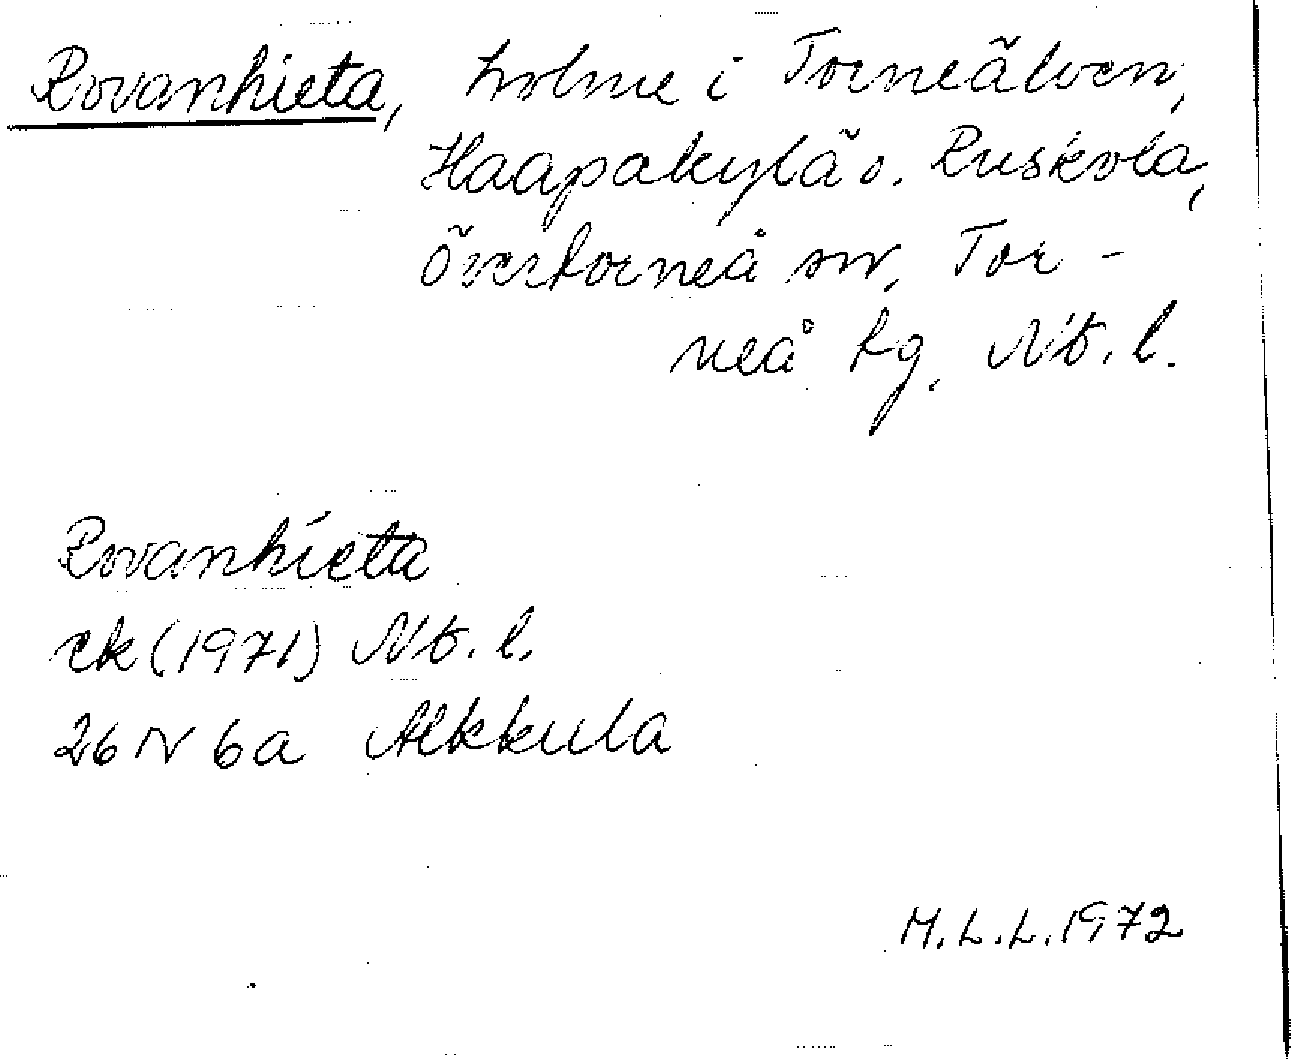 Rovanhieta, holme i Torneälven,
Haapakylä o. Ruskola,
Övertorneå sn, Tor-
neå tg, Nb. l.
Rovanhieta
ek (1971) Nb. l.
26 N 6a Alkkula
M.L.L. 1972